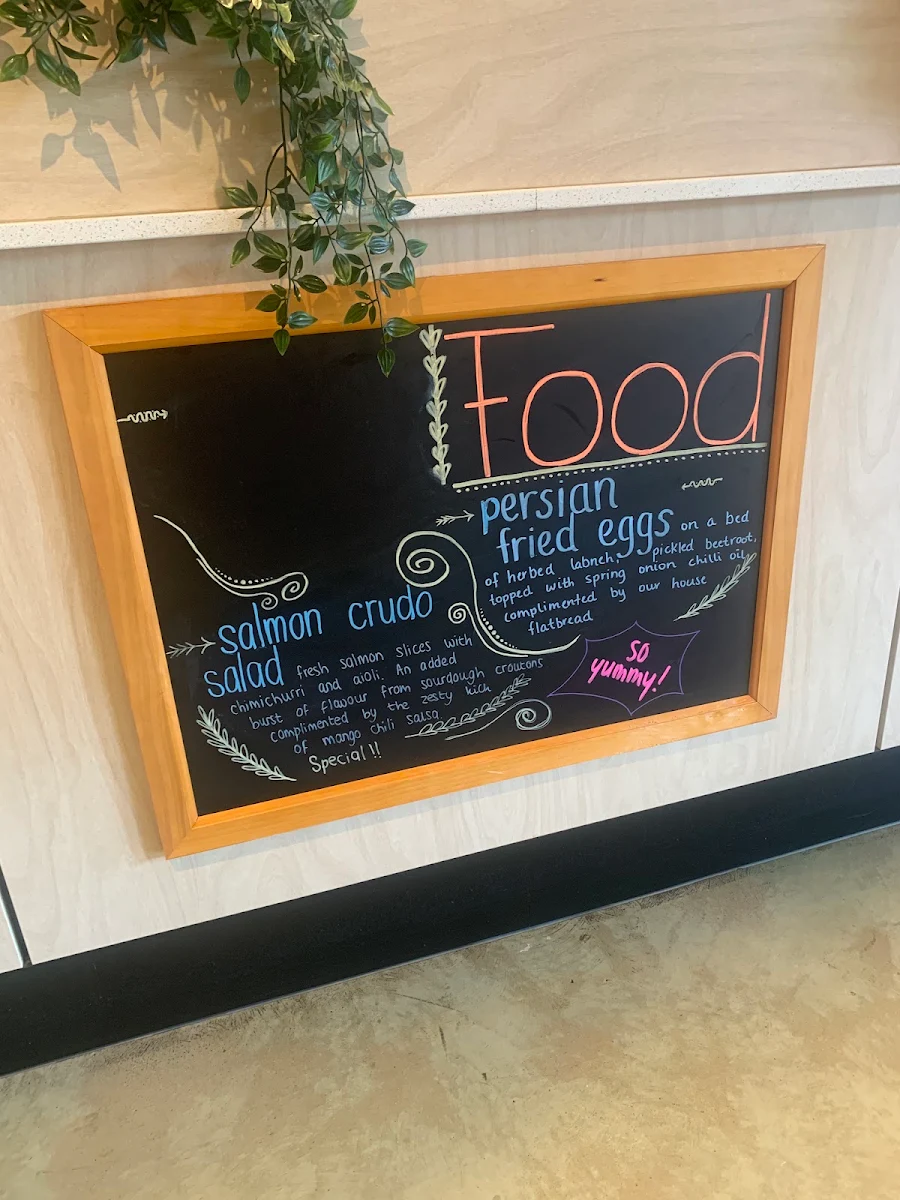 Food
persian
fried eggs on a bed
of herbed labneh, pickled beetroot,
topped with spring onion chilli oil
complimented by our house
flatbread
so
yummy!
salmon crudo
salad fresh salmon slices with
chimichurri and aioli. An added
bust of flavour from sourdough croutons
complimented by the zesty kick
of mango chili salsa
Special!!